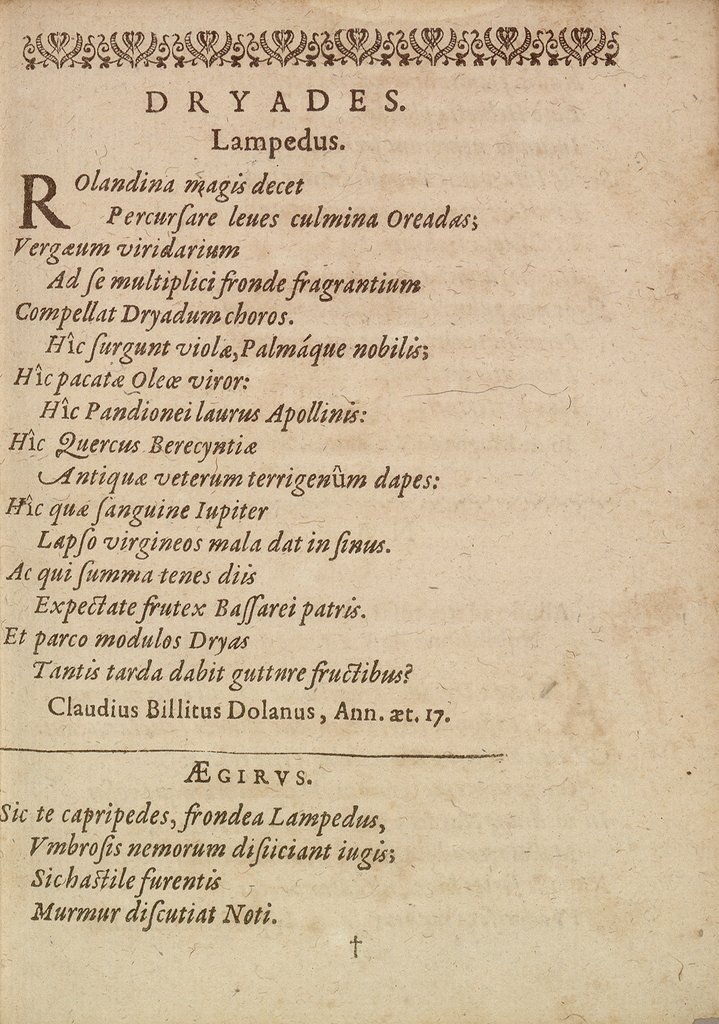 DRYADES.
Lampedus.
ROlandina magis decet
Percurſare leues culmina Oreadas;
Vergæum viridarium
Ad ſe multiplici fronde fragrantium
Compellat Dryadum choros.
Hîc ſurgunt violæ, Palmáque nobilis;
Hîc pacatæ Oleæ viror:
Hîc Pandionei laurus Apollinis:
Hîc Quercus Berecyntiæ
Antiquæ veterum terrigenûm dapes:
Hîc quæ ſanguine Iupiter
Lapſo virgineos mala dat in ſinus.
Ac qui ſumma tenes diis
Expectate frutex Baſſarei patris.
Et parco modulos Dryas
Tantis tarda dabit guttnre fructibus?
Claudius Billitus Dolanus, Ann. æt. 17.
ÆGIRVS.
Sic te capripedes, frondea Lampedus,
Vmbroſis nemorum diſiiciant iugis;
Sic haſtile furentis
Murmur diſcutiat Noti.
†